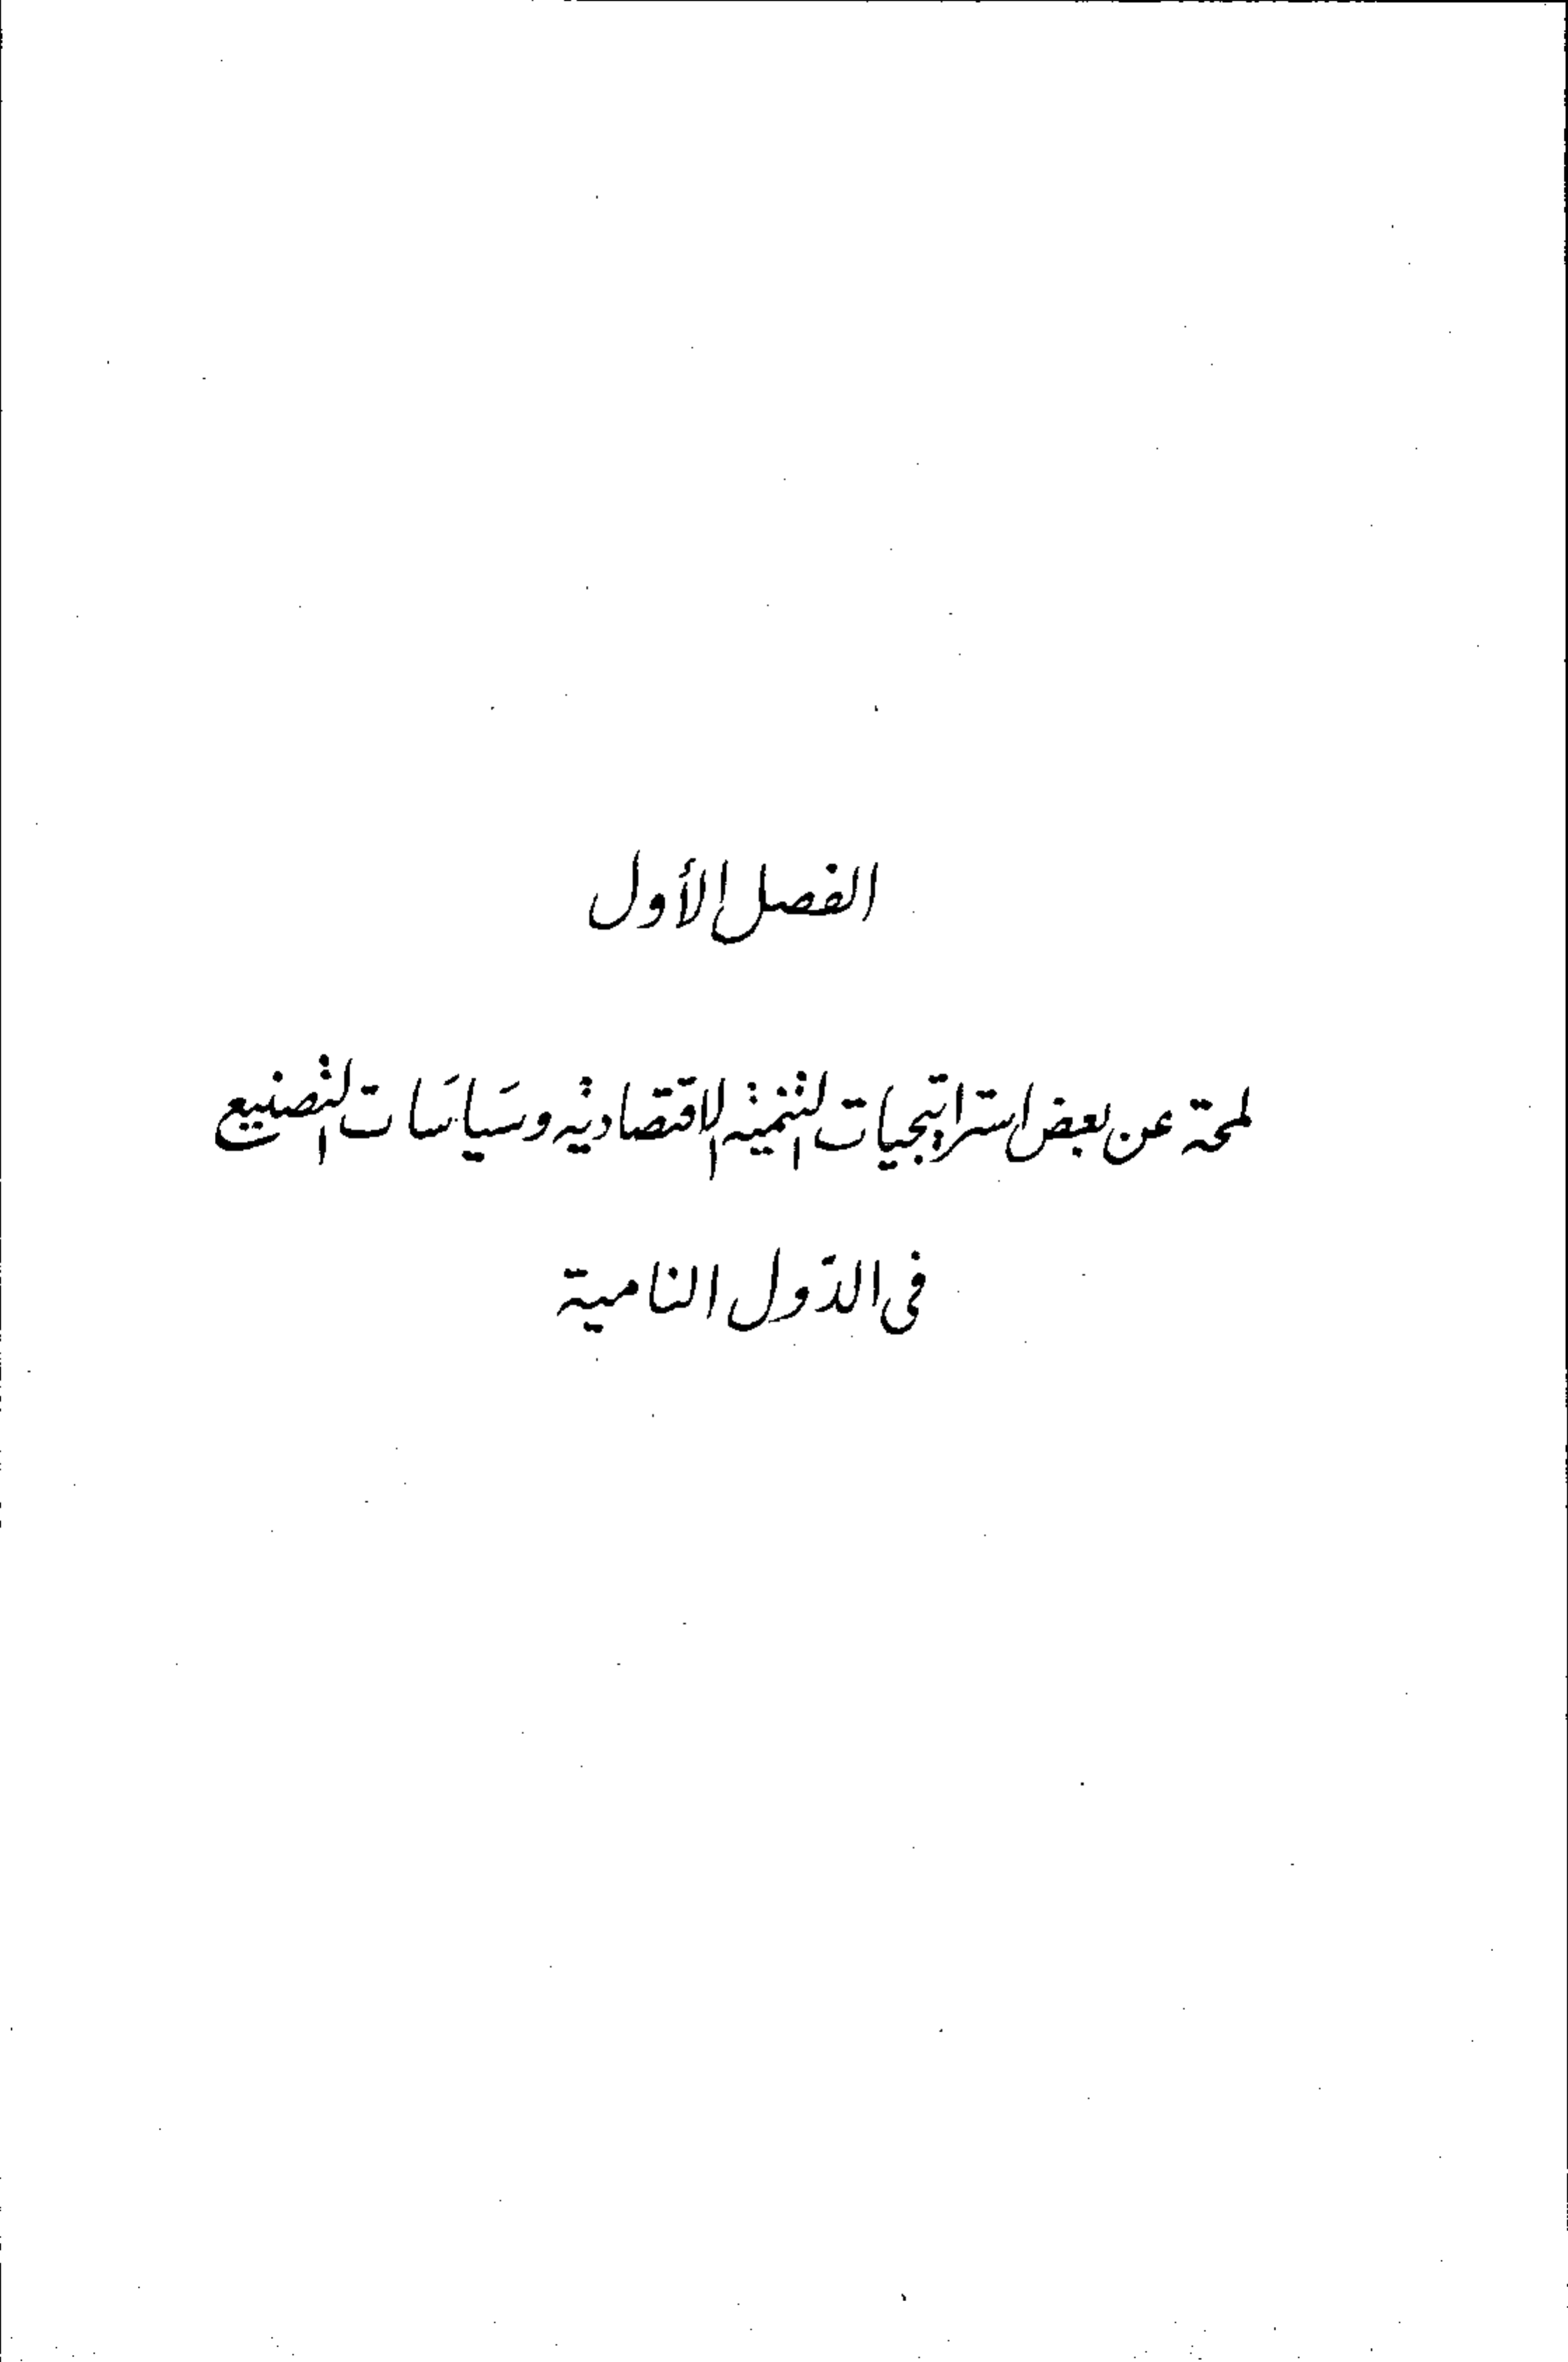 الفصل الأول
لمحة عن بعض استراتيجيات التنمية الاقتصادية وسياسات التصنيع
في الدول النامية